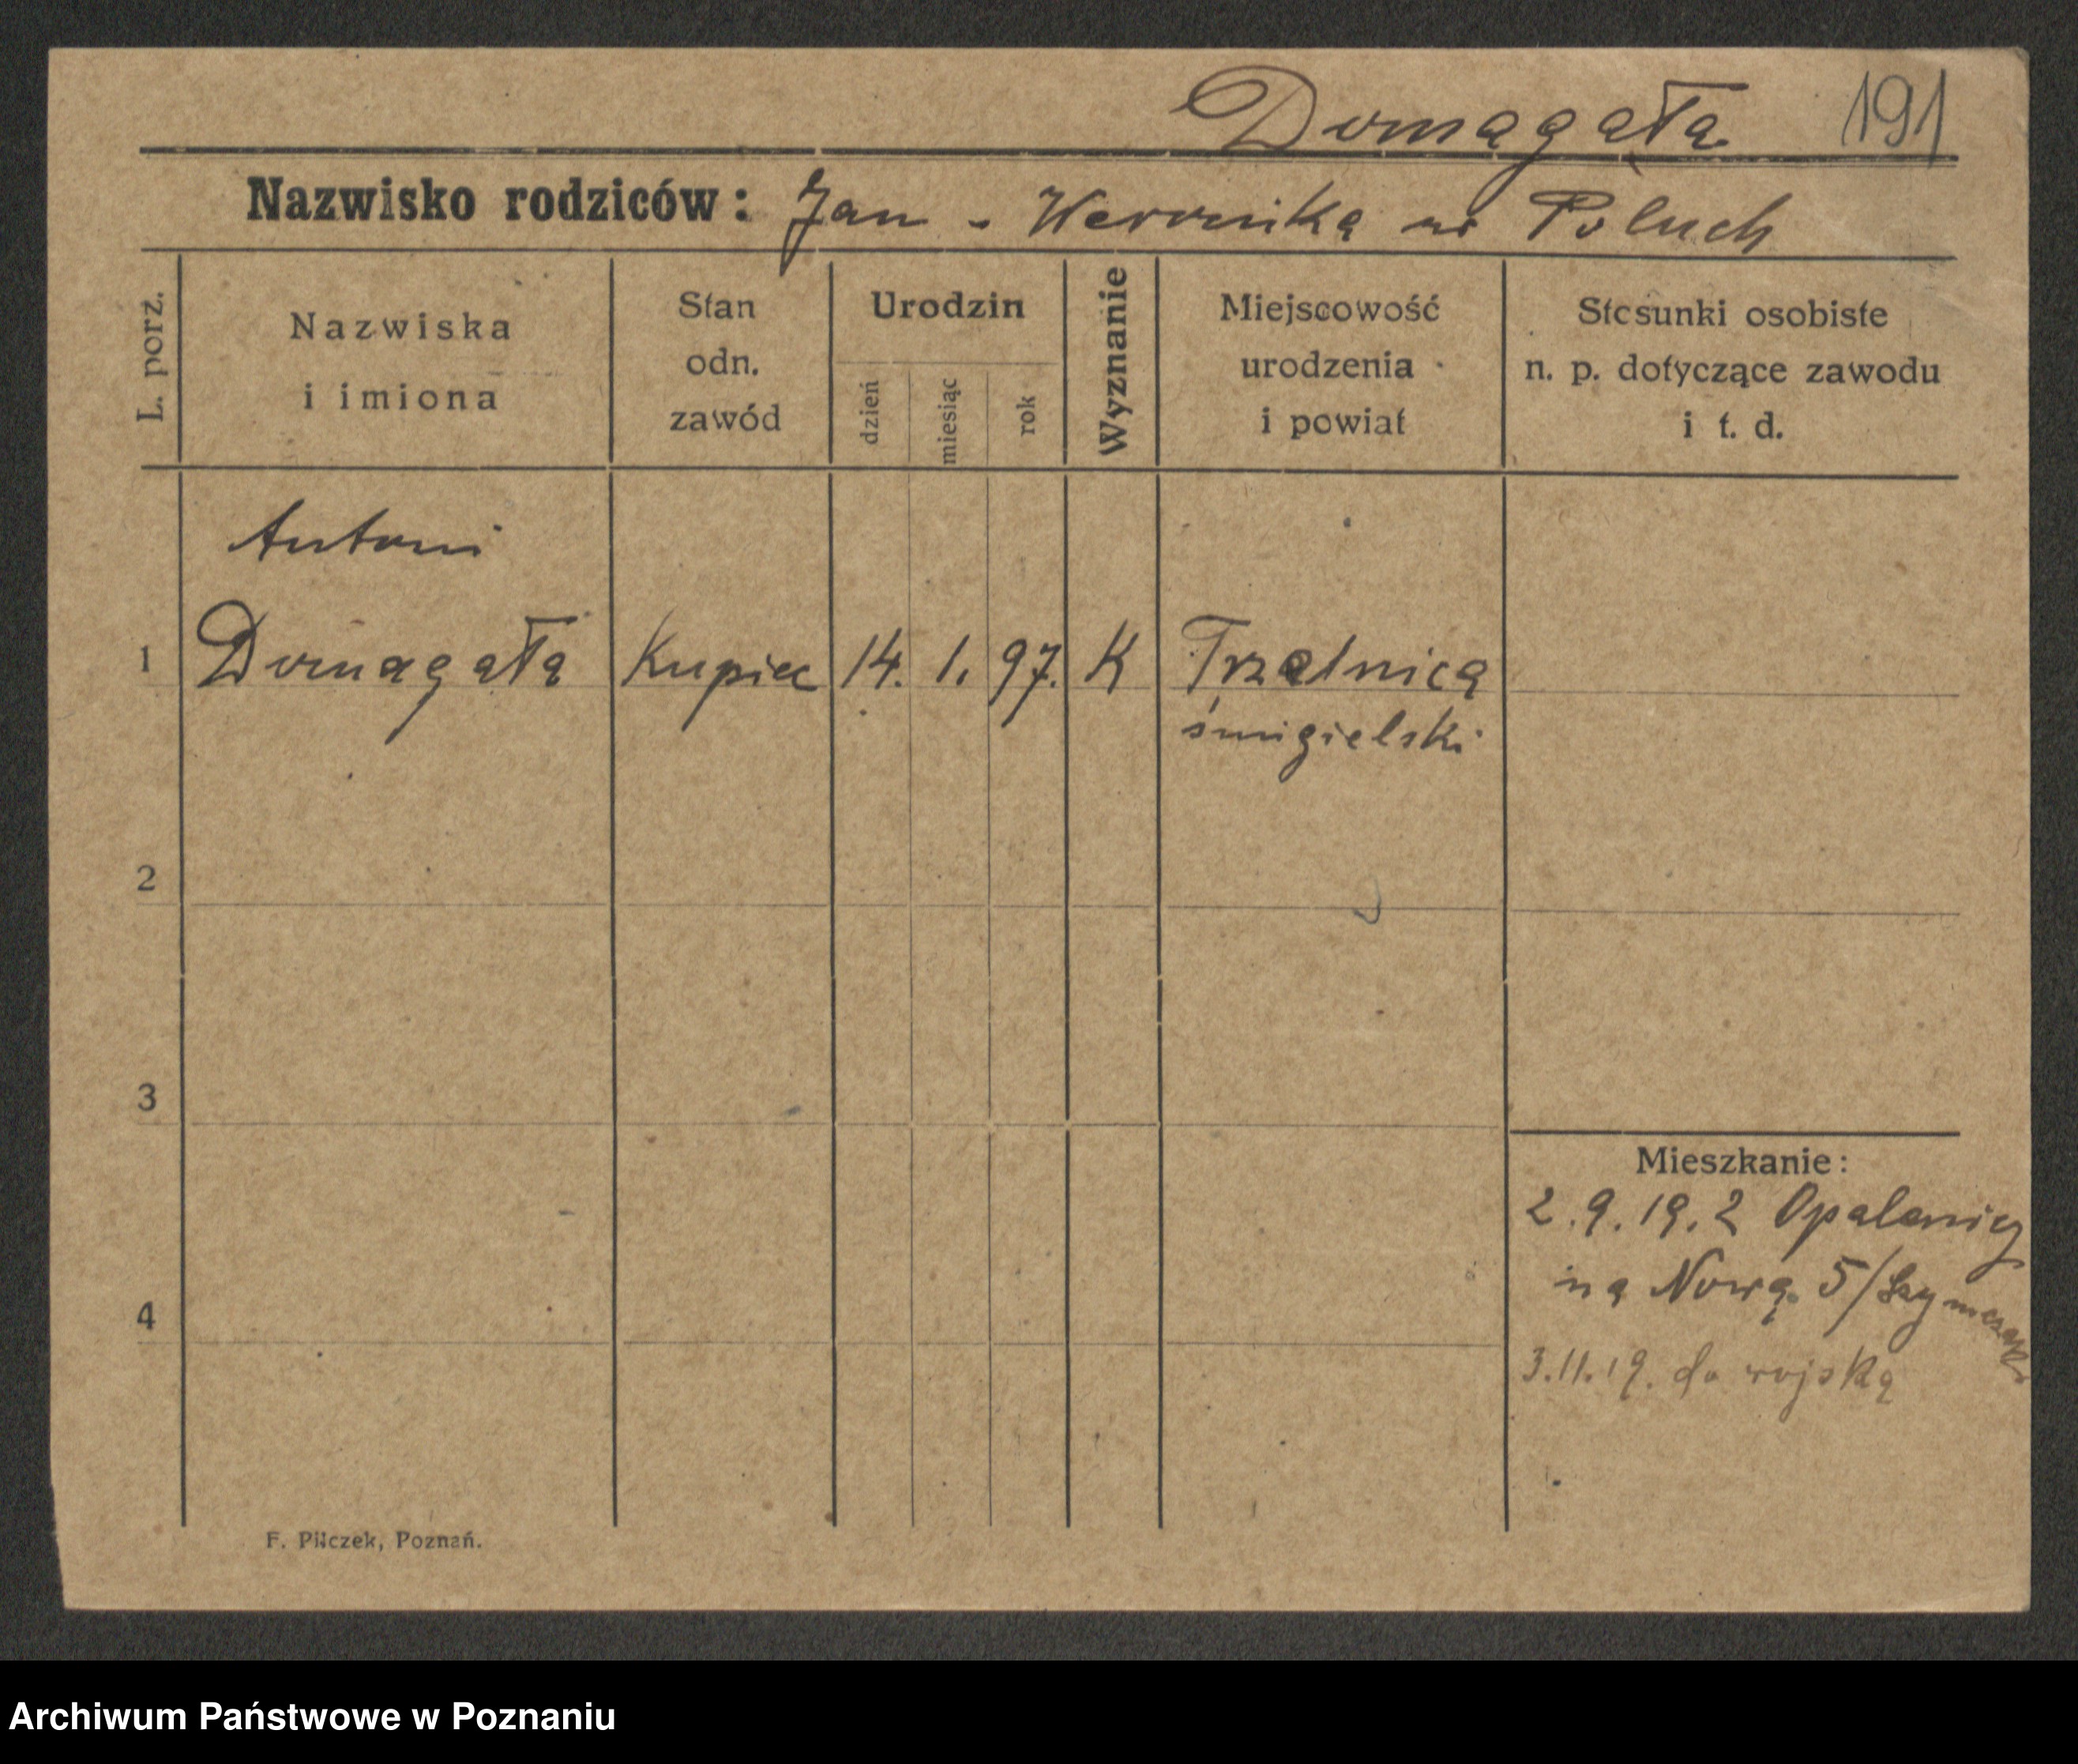 Domagała 191
Nazwisko rodziców: Jan - Weronika ur Poluch
L. porz.
Nazwiska
i imiona
Stan
odn.
zawód
Urodzin
dzień
miesiąc
rok
Wyznanie
Miejscowość
urodzenia
i powiat
Stosunki osobiste
n. p. dotyczące zawodu
i t. d.
Antoni
1 Domagała Kupiec 14. 1. 97. K
śmigielski
2
3
Mieszkanie:
2.9.19. z Opalenicy
na Nową 5/
4
3.11.19. do wojska
F. Pilczek, Poznań.
Archiwum Państwowe w Poznaniu